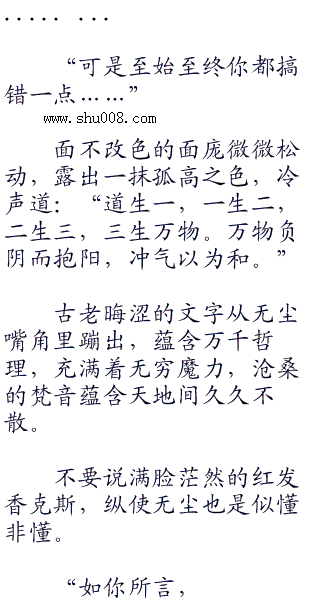 ..... ...
“可是至始至终你都搞
错一点……”
www.shu008.com
面不改色的面庞微微松
动，露出一抹孤高之色，冷
声道：“道生一，一生二，
二生三，三生万物。万物负
阴而抱阳，冲气以为和。”
古老晦涩的文字从无尘
嘴角里蹦出，蕴含万千哲
理，充满着无穷魔力，沧桑
的梵音蕴含天地间久久不
散。
不要说满脸茫然的红发
香克斯，纵使无尘也是似懂
非懂。
“如你所言，